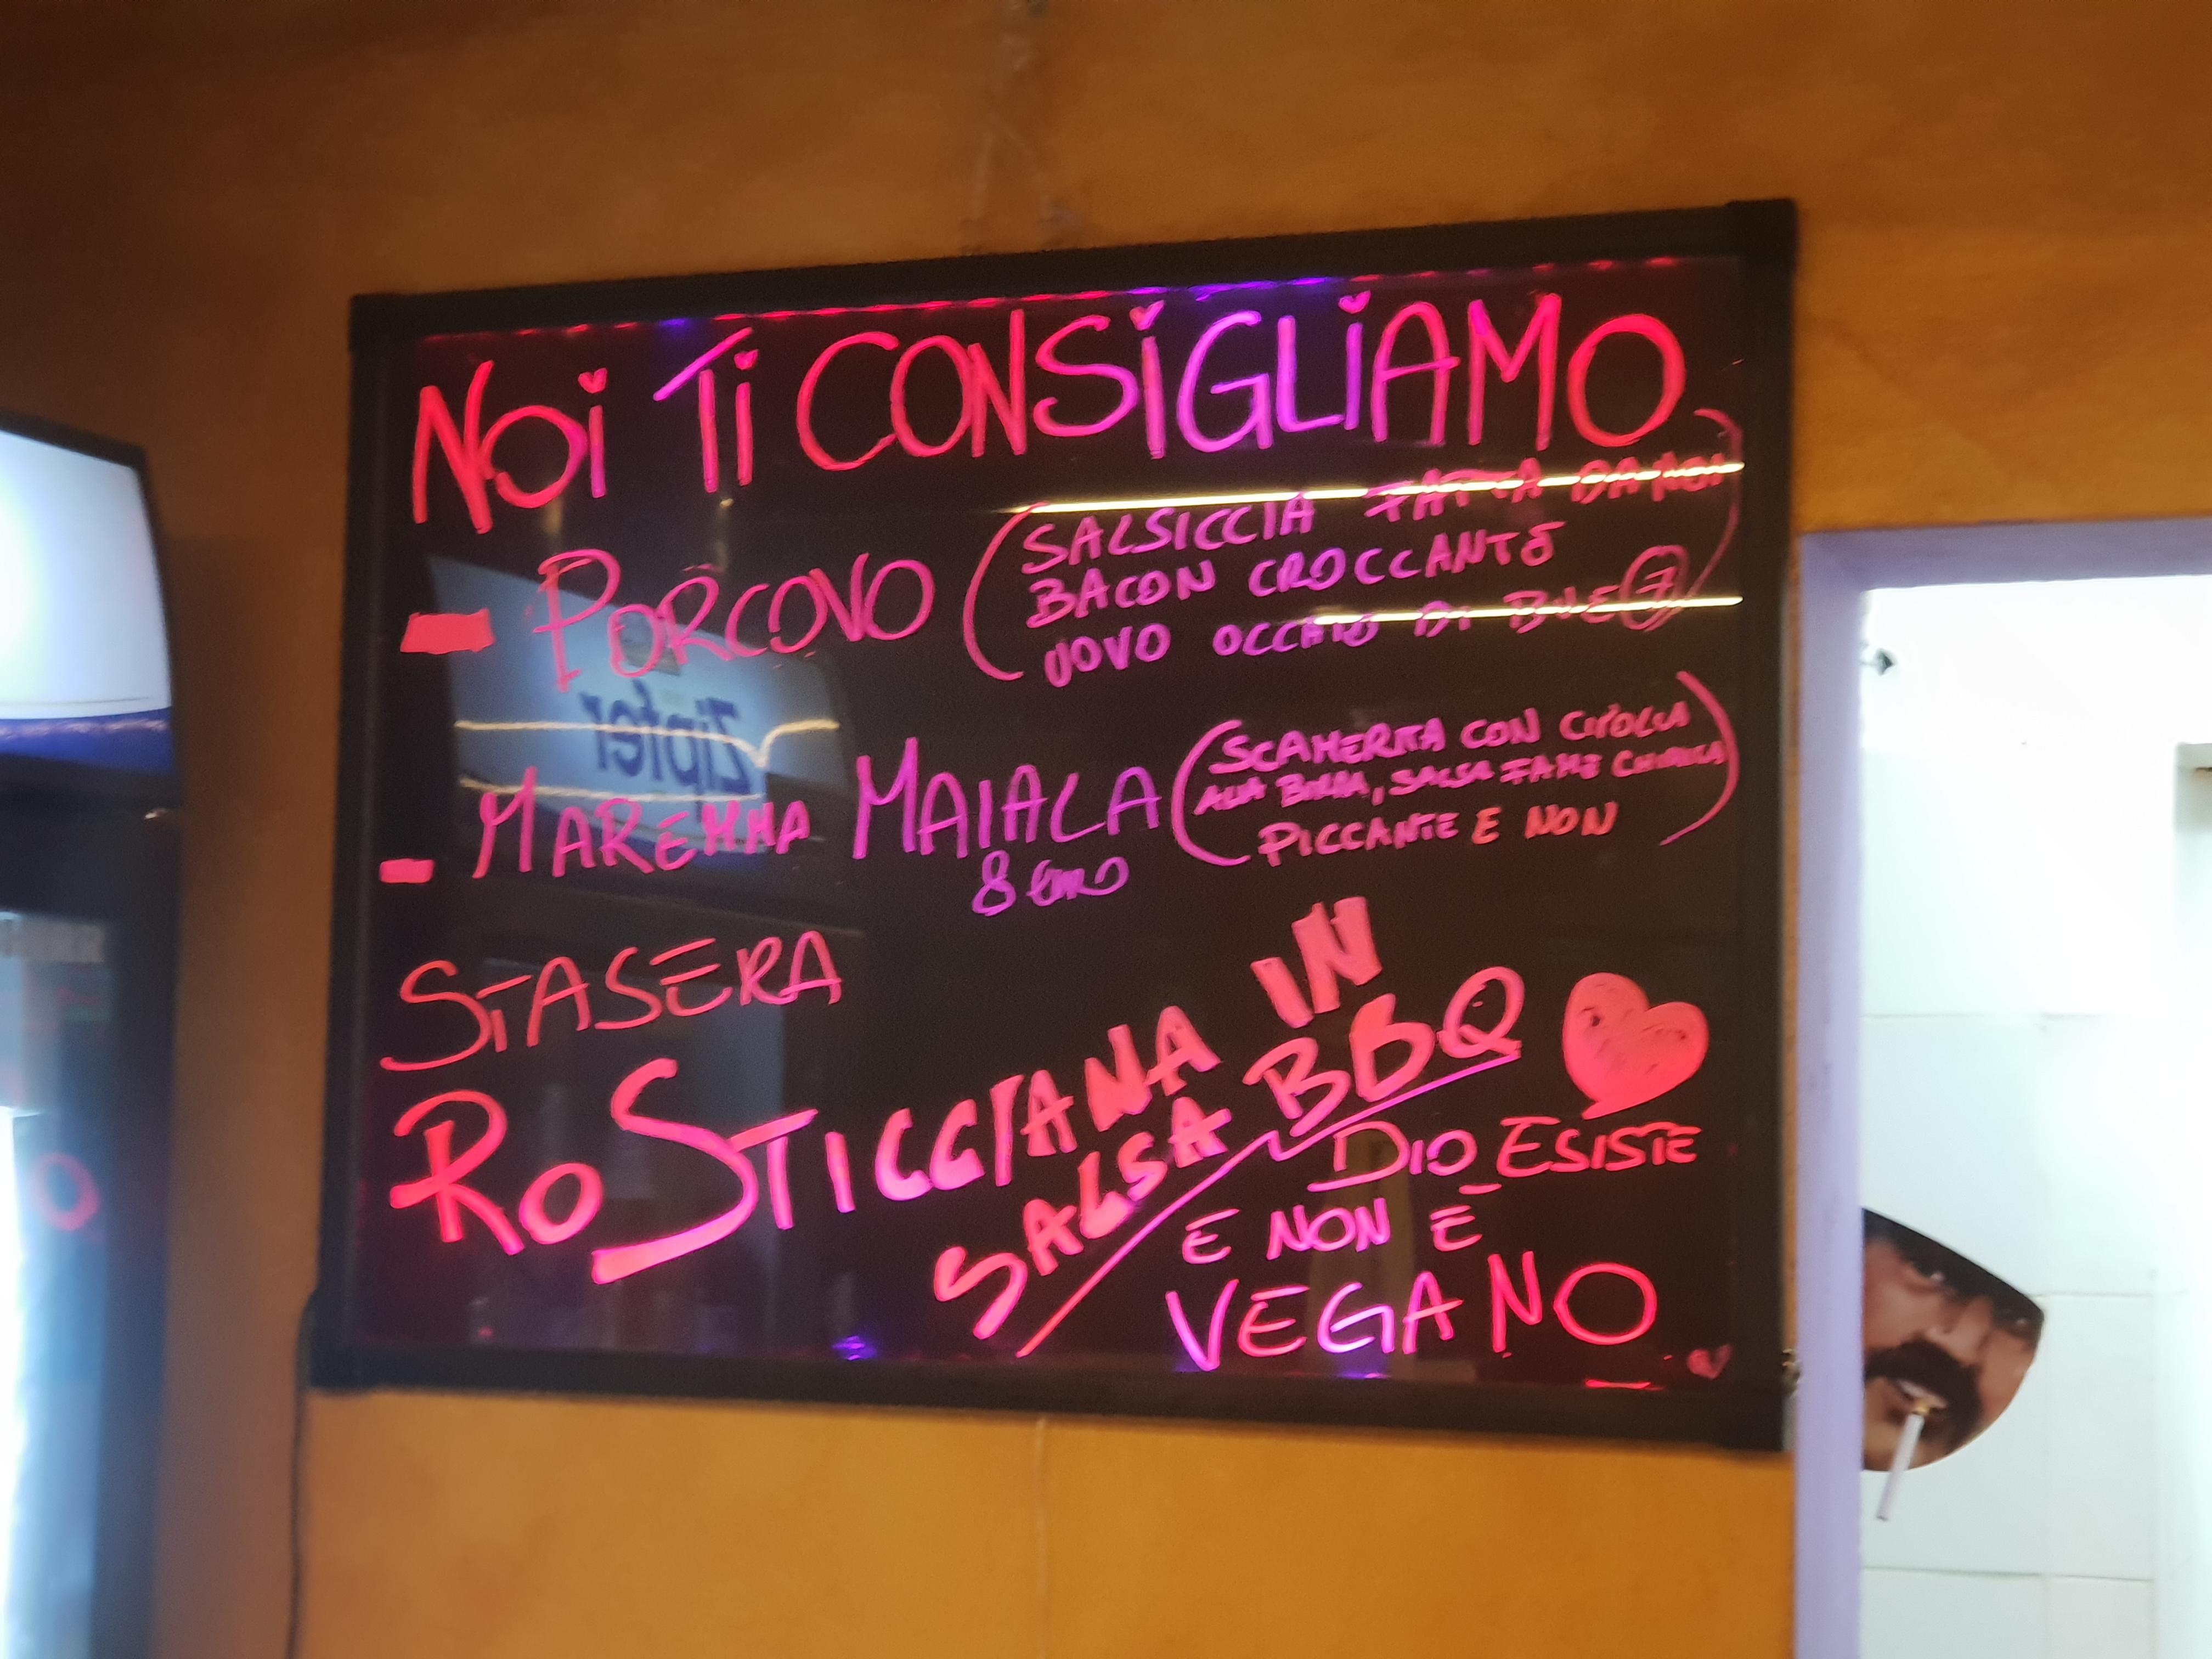 NOI TI CONSIGLIAMO
- PORCOVO (SALSICCIA FATTA DA NOI
BACON CROCCANTE
UOVO OCCHIO DI BUE 7)
- MAREMMA MAIALA (SCAMERITA CON CIPOLLA
ALLA BIRRA, SALSA FAME CHIMICA
PICCANTE E NON)
8 euro
STASERA
ROSTICCIANA IN
SALSA BBQ
DIO ESISTE
E NON È
VEGANO
Zipfer